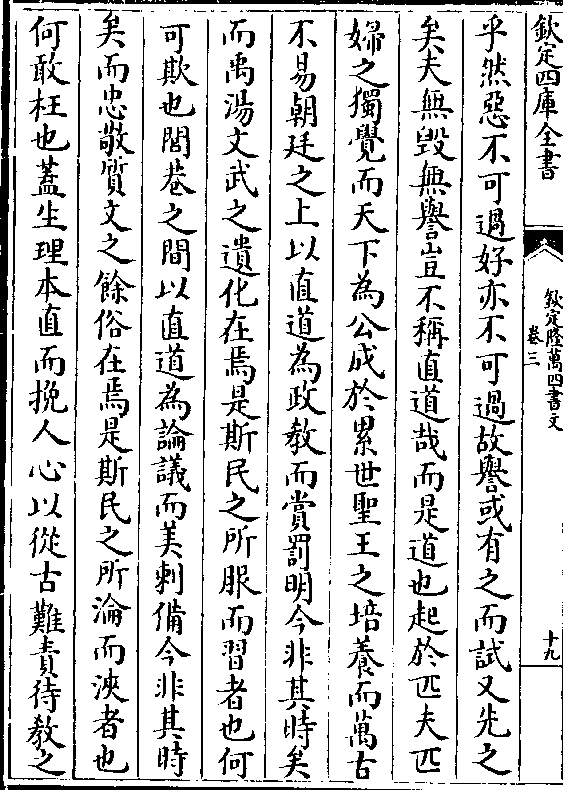 欽定四庫全書
欽定隆萬四書文
卷三
十九
乎然惡不可過好亦不可過故譽或有之而試又先之
矣夫無毀無譽豈不稱直道哉而是道也起於匹夫匹
婦之獨覺而天下為公成於累世聖王之培養而萬古
不易朝廷之上以直道為政教而賞罰明今非其時矣
而禹湯文武之遺化在焉是斯民之所服而習者也何
可欺也閭巷之間以直道為論議而美刺備今非其時
矣而忠敬質文之餘俗在焉是斯民之所淪而浹者也
何敢枉也蓋生理本直而挽人心以從古難責待教之